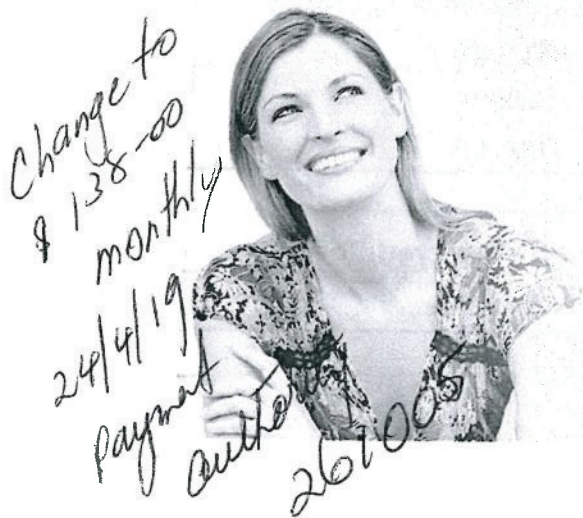 Change to
$ 138-00
monthly
24/4/19
Payment
authority
261005